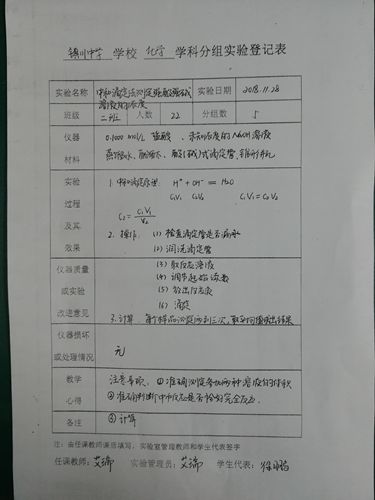 银川中学 学校 化学 学科分组实验登记表
实验名称 中和滴定法测定强酸强碱溶液的浓度 实验日期 2018.11.28
班级 二班 人数 22 分组数 5
仪器 0.1000 mol/L 盐酸、未知浓度的NaOH溶液
材料 蒸馏水、酚酞、酸(碱)式滴定管、锥形瓶
实验 1. 中和滴定原理 H⁺ + OH⁻ = H₂O
过程 C₁V₁ C₂V₂ C₁V₁=C₂V₂
及其 C₂ = C₁V₁/V₂
效果 2. 操作: (1) 检查滴定管是否漏水
(2) 润洗滴定管
仪器质量 (3) 取反应溶液
或实验 (4) 调节起始读数
改进意见 (5) 放出反应液
(6) 滴定
3. 计算 每个样品测定两到三次,取平均值求出结果
仪器损坏
或处理情况 无
教学 注意事项: ①准确测定参加两种溶液的体积
心得 ②准确判断中和反应是否恰好完全反应
备注 ③计算
注:由任课教师课后填写,实验室管理教师和学生代表签字
任课教师:艾瑞 实验管理员:艾瑞 学生代表: